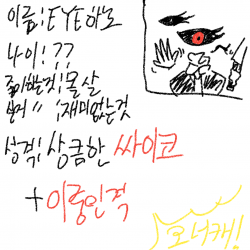 이름:EYE하노
나이:??
좋아하는것:몰살
보어 〃 :재미없는것
성격:상큼한 싸이코
+이중인격
오너캐!